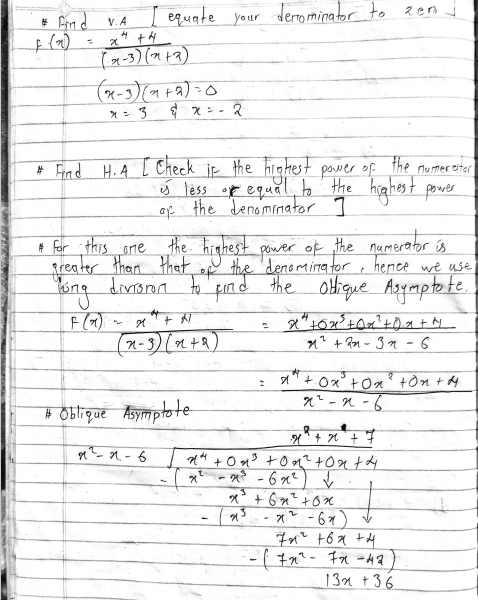 # Find V.A [ equate your denominator to zero ]
F(x) = x⁴ + 4 / (x-3)(x+2)
(x-3)(x+2) = 0
x = 3 & x = - 2
# Find H.A [ Check if the highest power of the numerator
is less or equal to the highest power
of the denominator ]
# For this one the highest power of the numerator is
greater than that of the denominator, hence we use
long division to find the Oblique Asymptote.
F(x) = x⁴ + 4 / (x-3)(x+2) = x⁴+0x³+0x²+0x+4 / x² + 2x - 3x - 6
= x⁴ + 0x³ + 0x² + 0x + 4 / x² - x - 6
# Oblique Asymptote
x² + x + 7
x² - x - 6 √ x⁴ + 0x³ + 0x² + 0x + 4
-( x² - x³ - 6x² ) ↓
x³ + 6x² + 0x
-( x³ - x² - 6x ) ↓
7x² + 6x + 4
-( 7x² - 7x - 42 )
13x + 36